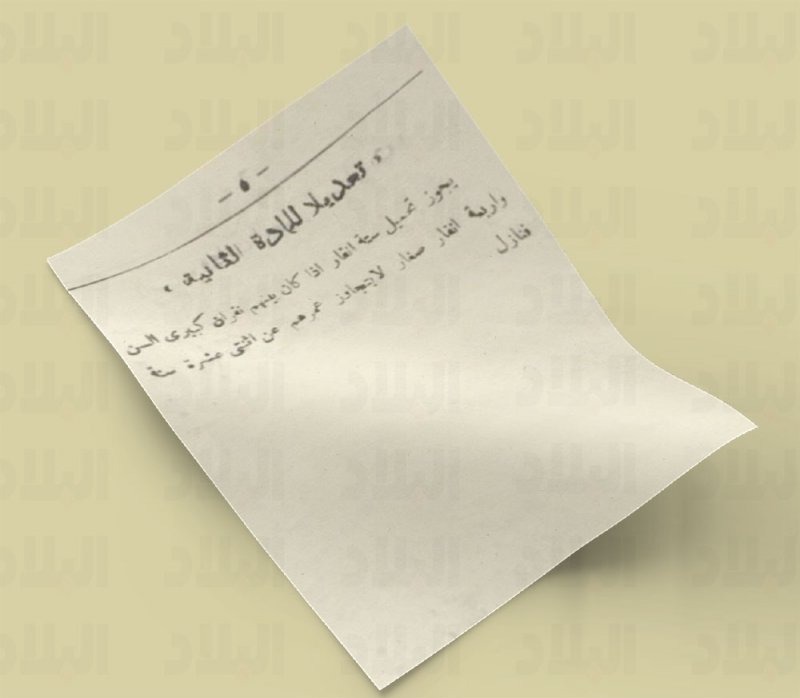 - ٥ -
« تعديلا للمادة الثانية »
يجوز تحميل ستة انفار اذا كان بينهم نفران كبيرى السن
واربعة انفار صغار لايتجاوز عمرهم عن اثنى عشرة سنة
فنازل